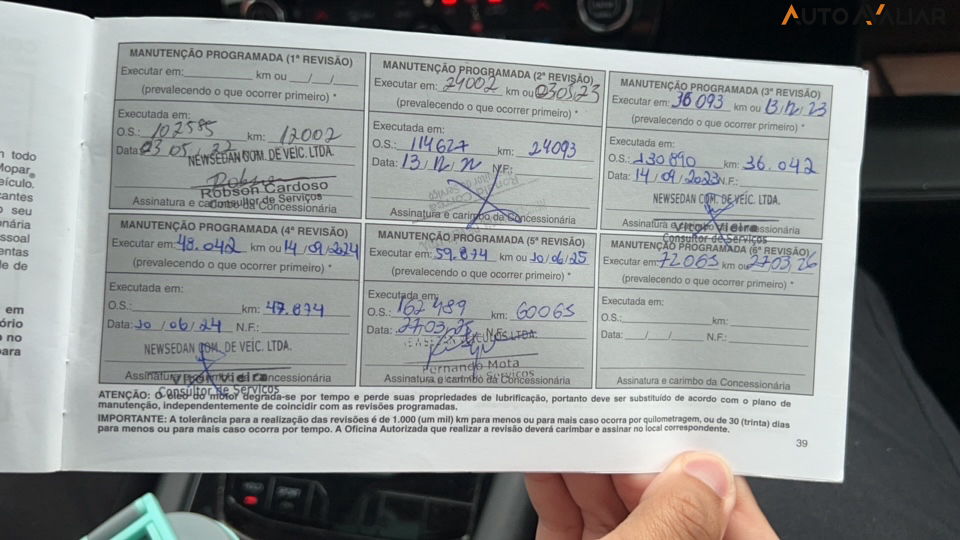 AUTO AVALIAR
MANUTENÇÃO PROGRAMADA (1ª REVISÃO)
Executar em: km ou / /
(prevalecendo o que ocorrer primeiro) *
Executada em:
O.S.: 102585 km: 12002
Data: 03 05 22
NEWSEDAN COM. DE VEÍC. LTDA.
Robson Cardoso
Consultor de Serviços
Assinatura e carimbo da Concessionária
MANUTENÇÃO PROGRAMADA (2ª REVISÃO)
Executar em: 24002 km ou 03 05 23
(prevalecendo o que ocorrer primeiro) *
Executada em:
O.S.: 114627 km: 24093
Data: 13 / 12 / 22 N.F.:
Assinatura e carimbo da Concessionária
MANUTENÇÃO PROGRAMADA (3ª REVISÃO)
Executar em: 36 093 km ou 13/12/23
(prevalecendo o que ocorrer primeiro) *
Executada em:
O.S.: 130890 km: 36.042
Data: 14/09/2023 N.F.:
NEWSEDAN COM. DE VEÍC. LTDA.
Vitor Vieira
Consultor de Serviços
MANUTENÇÃO PROGRAMADA (4ª REVISÃO)
Executar em: 48.042 km ou 14/09/2024
(prevalecendo o que ocorrer primeiro) *
Executada em:
O.S.: km: 47.874
Data: 10 / 06 / 24 N.F.:
NEWSEDAN COM. DE VEÍC. LTDA.
Assinatura Concessionária
Vitor Vieira
Consultor de Serviços
MANUTENÇÃO PROGRAMADA (5ª REVISÃO)
Executar em: 59.874 km ou 10/06/25
(prevalecendo o que ocorrer primeiro) *
Executada em:
O.S.: 162489 km: 60065
Data: 27 03 25 N.F.:
Fernando Mota
Assinatura e carimbo da Concessionária
MANUTENÇÃO PROGRAMADA (6ª REVISÃO)
Executar em: 72065 km ou 27 03 26
(prevalecendo o que ocorrer primeiro) *
Executada em:
O.S.: km:
Data: / / N.F.:
Assinatura e carimbo da Concessionária
ATENÇÃO: O óleo do motor degrada-se por tempo e perde suas propriedades de lubrificação, portanto deve ser substituído de acordo com o plano de
manutenção, independentemente de coincidir com as revisões programadas.
IMPORTANTE: A tolerância para a realização das revisões é de 1.000 (um mil) km para menos ou para mais caso ocorra por quilometragem, ou de 30 (trinta) dias
para menos ou para mais caso ocorra por tempo. A Oficina Autorizada que realizar a revisão deverá carimbar e assinar no local correspondente.
39